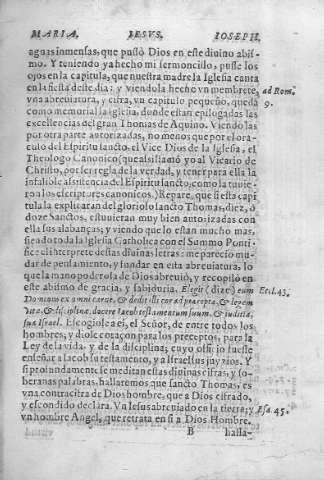 MARIA. IESVS. IOSEPH.
aguas inmensas, que pusso Dios en este divino abis-
mo. Y teniendo ya hecho mi sermoncillo, pusse los
ojos en la capitula, que nuestra madre la Iglesia canta
en la fiesta deste dia: y viendola hecho vn membrete, ad Rom.
vna abreviatura, y cifra, vn capitulo pequeño, queda 9.
como memorial la Iglesia, donde estan epilogadas las
excellencias del gran Thomas de Aquino. Viendo las
por otra parte autorizadas, no menos que por el ora-
culo del Espiritu sancto, el Vice Dios de la Iglesia, el
Theologo Canonico (que assi llamó yo al Vicario de
Christo, por ser regla de la verdad, y tener para ella la
infalible assistencia del Espiritu sancto, como la tuvie-
ron los escriptores canonicos.) Reparè, que si esta capi-
tula la explicaran del glorioso sancto Thomas, diez, ò
doze Sanctos, estuvieran muy bien autorizadas con
ella sus alabanças; y viendo que lo estan mucho mas,
siendo toda la Iglesia Catholica con el Summo Ponti-
fice el interprete destas divinas letras: me parecio mu-
dar de pensamiento, y fundar en esta abreviatura, lo
que la mano poderosa de Dios abreuiò, y recopilò en
este abismo de gracia, y sabiduria. Elegit (dize) eum Eccl. 43.
Dominus ex omni carne, & dedit illi cor ad præcepta, & legem
vitæ, & disciplinæ, docere Iacob testamentum suum, & iuditia
sua Israel. Escogiole a ei, el Señor, de entre todos los
hombres, y diole coraçon para los preceptos, para la
Ley de la vida, y de la disciplina; cuyo offi io fuesse
enseñar a Iacob su testamento, y a Israel sus juyzios. Y
si profundamente se meditan estas divinas cifras, y so-
beranas palabras, hallaremos que sancto Thomas, es
vna contracifra de Dios hombre, que a Dios cifrado,
y escondido declara. Vn Iesus abreuiado en la tierra; y Esa. 45.
vn hombre Angel, que retrata en si a Dios Hombre.
B halla-